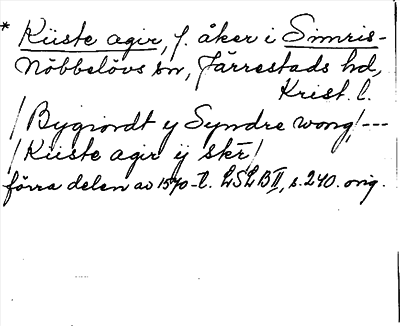 * Küste agir, f. åker i Simris-
Nöbbelövs sn, Järrestads hd,
Krist. l.
/Bygiordt y Syndre wong/---
/Küste agir ij skr/
förra delen av 1570-t. LSLB II, s. 240. orig.